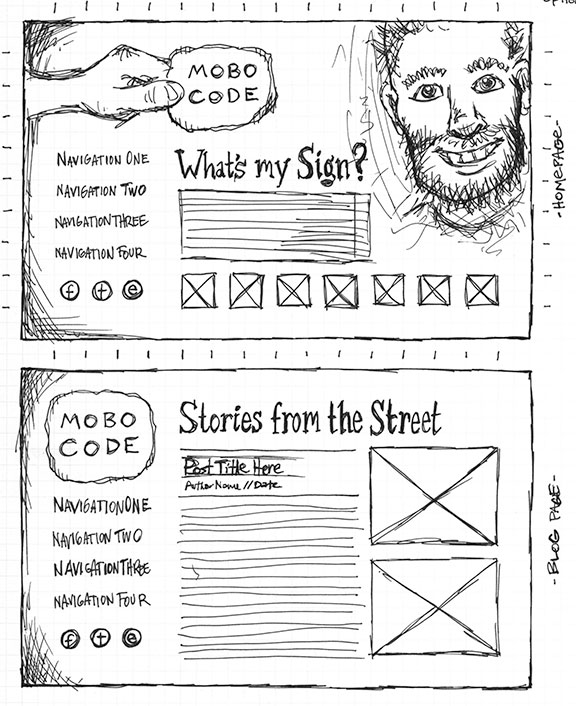 MOBO
CODE
NAVIGATION ONE
NAVIGATION TWO
NAVIGATION THREE
NAVIGATION FOUR
f t e
What's my Sign?
-HOMEPAGE-
MOBO
CODE
NAVIGATION ONE
NAVIGATION TWO
NAVIGATION THREE
NAVIGATION FOUR
f t e
Stories from the Street
Post Title Here
Author Name // Date
-BLOG PAGE-